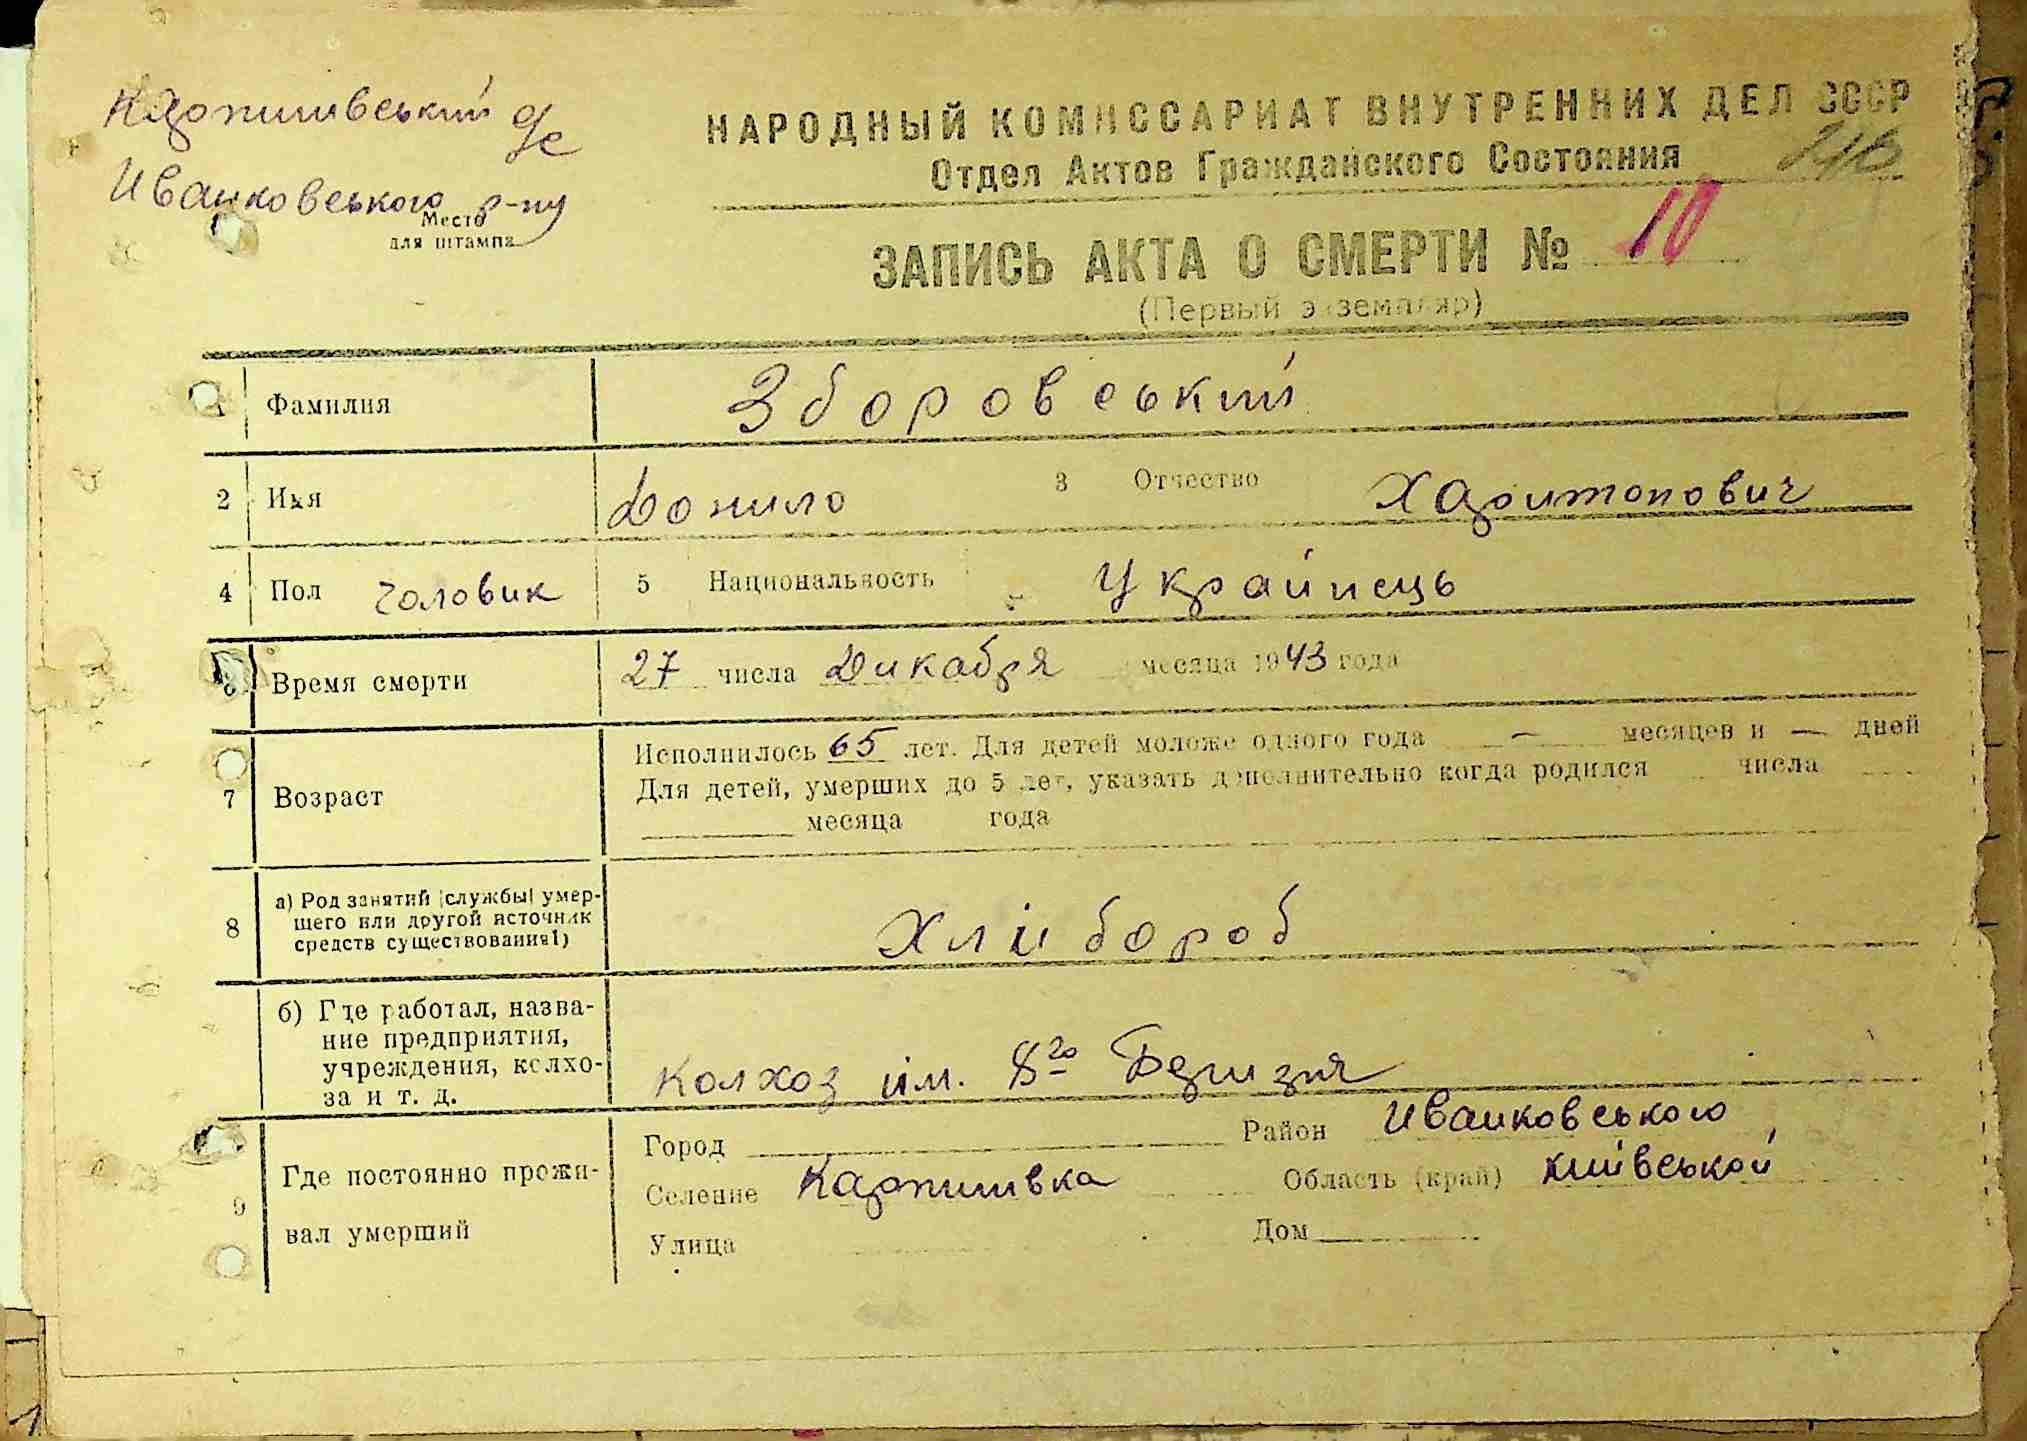 Карпилівський
Иванковського р-ну
Место
для штампа
НАРОДНЫЙ КОМИССАРИАТ ВНУТРЕННИХ ДЕЛ СССР
Отдел Актов Гражданского Состояния
ЗАПИСЬ АКТА О СМЕРТИ № 10
(Первый экземпляр)
Фамилия Зборовський
2 Имя Донило 3 Отчество Харитонович
4 Пол чоловик 5 Национальность Украйнець
6 Время смерти 27 числа Дикабря месяца 1943 года
7 Возраст Исполнилось 65 лет. Для детей моложе одного года — месяцев и — дней
Для детей, умерших до 5 лет, указать дополнительно когда родился числа
месяца года
8 а) Род занятий (службы) умер-
шего или другой источник
средств существования1)
Хлібороб
б) Где работал, назва-
ние предприятия,
учреждения, колхо-
за и т. д.
колхоз им. 8го
9 Где постоянно прожи-
вал умерший
Город Район Иванковського
Селение Карпилівка Область (край) Київськой
Улица Дом